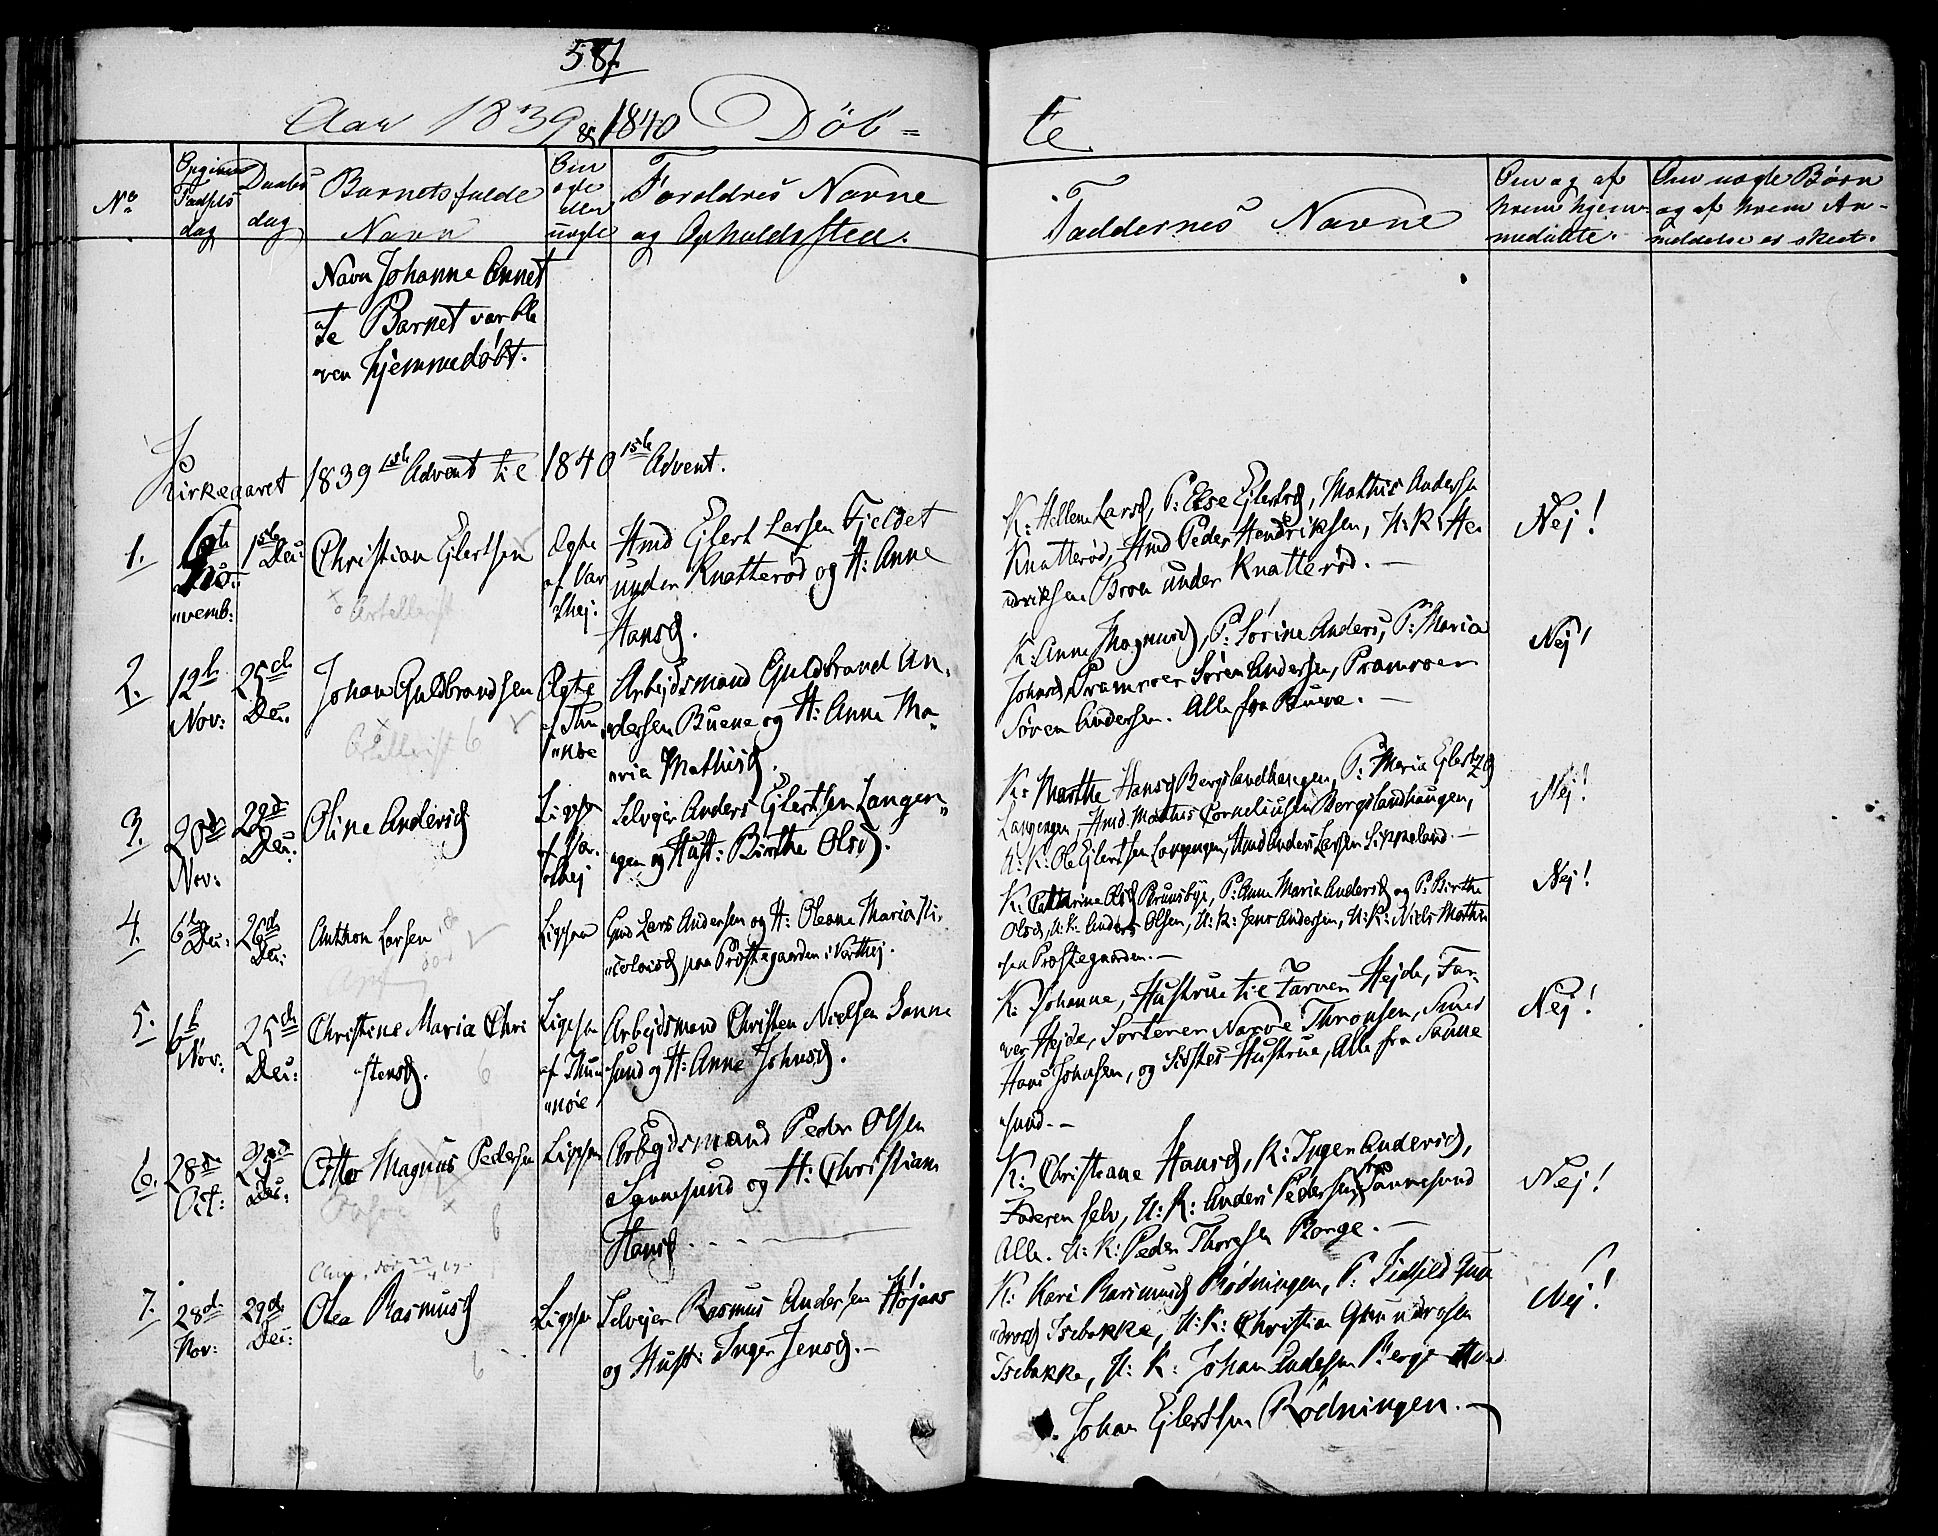 587
Aar 1839 & 1840 Døb=
te
No
Opgivne Fødsels dag
Daabs dag
Barnets fulde Navn
Om ægte eller uægte
Forældres Navne og Opholdssted.
Faddernes Navne
Om og af hvem hjemmedøbte.
Om uægte Børn og af hvem Anmeldelse er skeet.
Navn Johanne Annet
te Barnet var ble
ven hjemmedøbt.
Kirkeaaret 1839 1ste Advent til 1840 1ste Advent.
1.
No-
vemb:
1ste Dec:
Christian Ejlertsen
Ægte
af Var
thej:
Hmd Ejlert Larsen Fjeldet
under Knatterød og H: Anne
Hansd.
K: Hellene Larsd, P: Else Ejlertsd, Mathis Andersen
Knatterød, Hmd Peder Hendriksen, U:K: He
ndriksen Broen under Knatterød. —
Nej!
2.
12te
Nov:
25de
Dec.
Johan Guldbrandsen
Ægte
af Thu
nøe
Arbejdsmand Guldbrand An-
dersen Buene og H: Anne Ma-
ria Mathisd.
K: Anne Magnusd, P: Sørine Anders, P: Maria
Johnsd, Præmroer Søren Andersen, Præmroer
Søren Andersen. Alle fra Buene. —
Nej!
3.
20de
Nov:
29de
Dec:
Oline Andersd
Ligesaa
af Var-
thej
Selvejer Anders Ejlertsen Langen-
gen og Hust: Birthe Olsd.
K: Marthe Hansd Bergslandhaugen, P: Maria Ejlertsd
Langengen, Hmd Mathis Corneliusen Bergslandhaugen,
U: K: Ole Ejlertsen Langengen, Hmd Anders Larsen Sikkeland. —
Nej!
4.
6te
Dec:
26de
Dec:
Anthon Larsen
død
Ligesaa
Gmd Lars Andersen og H: Oleane Maria Ni-
colaisd paa Præstegaarden i Varthej.
K: Cathrine Olsd Brunsbye, P: Anne Maria Andersd og P: Birthe
Olsd, U: K: Anders Olsen, U: K: Jens Andersen, U: K: Niels Mathis
sen Præstegaarden. —
Nej!
5.
6te
Nov:
25de
Dec:
Christine Maria Chri
stensd.
6
Ligesaa
af Thu
nøe
Arbejdsmand Christen Nielsen Sanne
sund og H: Anne Johnsd.
K: Johanne, Hustrue til Farver Hejde, Far-
ver Hejde, Sorterer Narve Thronsen, Smed
Hans Johnsen, og Sidstes Hustrue, Alle fra Sanne
sund. —
Nej!
6.
28de
Oct:
29de
Dec:
Otto Magnus Pedersen
6
Ligesaa
Arbejdsmand Peder Olsen
Sannesund og H: Christiane
Hansd
K: Christiane Hansd, K: Inger Andersd,
Faderen selv, U: K: Anders Pedersen, Sannesund
Alle. U: K: Peder Thoresen Borge. —
Nej!
7.
28de
Nov:
29de
Dec:
Olea Rasmusd
6
Ligesaa
Selvejer Rasmus Andersen Højaas
og Hust: Inger Jensd. —
K: Kari Rasmusd Rødningen, P: Sidsild Gun
drosd Isebakke, U: K: Christian Gundrosen
Isebakke, U: K: Johan Andersen Berge
Johan Ejlertsen Rødningen. —
Nej!